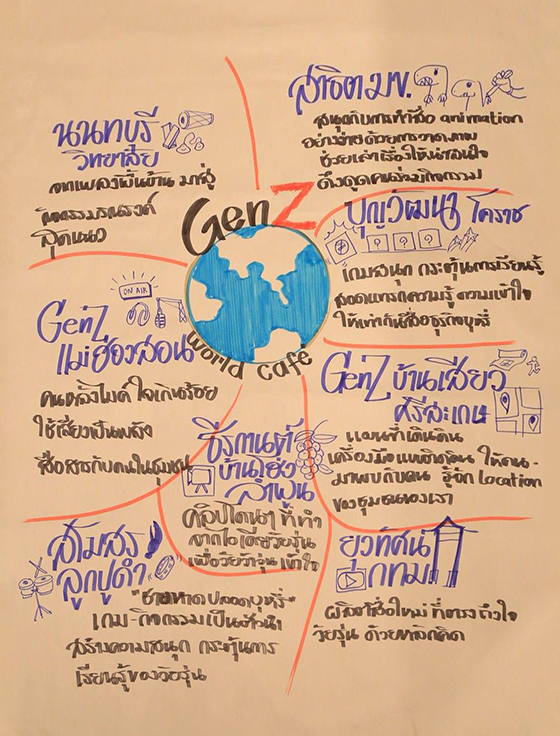 GenZ
World Café
สาธิต มข.
สนุกกับการทำสื่อ animation
อย่างง่ายด้วยการวาดภาพ
ช่วยเล่าเรื่องให้น่าสนใจ
ดึงดูดคนร่วมกิจกรรม
บุญวัฒนา โคราช
เกมสนุก กระตุ้นการเรียนรู้
สอดแทรกความรู้ ความเข้าใจ
ให้เท่าทันสื่อธุรกิจบุหรี่
GenZ บ้านเสียว
ศรีสะเกษ
แผนที่เดินดิน
เครื่องมือแผนที่ชุมชน ให้คน-
มาพบกับคน รู้จัก location
ของชุมชนของเรา
ยุวทัศน์
กทม
ผลิตสื่อใหม่ ที่ตรงถึงใจ
วัยรุ่น ด้วยคลิกคิด
ธีรกานต์
บ้านโฮ่ง
ลำพูน
คลิปโดนๆ ที่ทำ
จากไอเดียวัยรุ่น
เพื่อวัยว้าวุ่น เข้าใจ
สโมสร
ลูกปูดำ
"ชายหาดปลอดบุหรี่"
เกม-กิจกรรมเป็นตัวนำ
สร้างความสนุก กระตุ้นการ
เรียนรู้ของวัยรุ่น
ON AIR
GenZ
แม่ฮ่องสอน
คนหลังไมค์ ใจเกินร้อย
ใช้เสียงเป็นพลัง
สื่อสารกับคนในชุมชน
นนทบุรี
วิทยาลัย
จากเพลงพื้นบ้าน มาสู่
กิจกรรมรณรงค์
สุดแนว